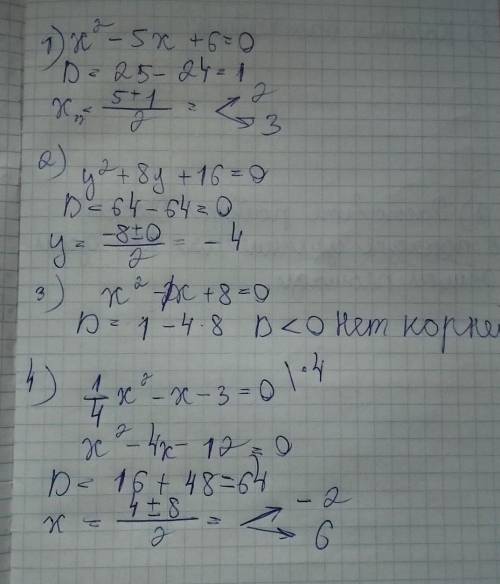 1) x² - 5x + 6 = 0
D = 25 - 24 = 1
= 5±1/2 = < 2
3
2) y² + 8y + 16 = 0
D = 64 - 64 = 0
y = -8±0/2 = -4
3) x² - x + 8 = 0
D = 1 - 4·8 D < 0 Нет корне
4) 1/4 x² - x - 3 = 0 \ ·4
x² - 4x - 12 = 0
D = 16 + 48 = 64
x = 4±8/2 = < -2
6